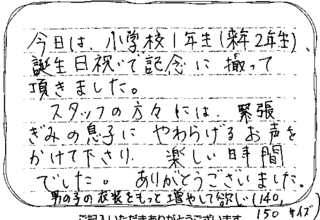 今日は、小学校1年生(来年2年生)、
誕生日祝いで記念に撮って
頂きました。
スタッフの方々には、緊張
ぎみの息子にやわらげるお声を
かけて下さり、楽しい時間
でした。ありがとうございました。
男の子の衣装をもっと増やして欲しい(140,
150サイズ)
ご記入いただきありがとうございます